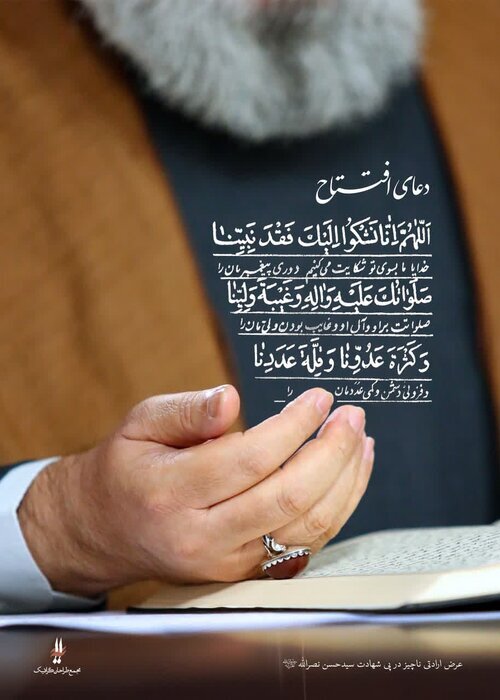 دعای افتتاح
اَللّٰهُمَّ اِنّا نَشْكُوا اِلَيْكَ فَقْدَ نَبِيِّنا
خدایا ما بسوی تو شکایت می‌کنیم دوری پیغمبرمان را
صَلَواتُكَ عَلَيْهِ وَالِهِ وَغَيْبَةَ وَلِيِّنا
صلوات‌ت بر او و آل او و غایب بودن ولی‌مان را
وَ كَثْرَةَ عَدُوِّنا وَ قِلَّةَ عَدَدِنا
و فزونی دشمن و کمی عددمان را
عرض ارادتی ناچیز در پی شهادت سیدحسن نصرالله
مجمع طراحان گرافیک